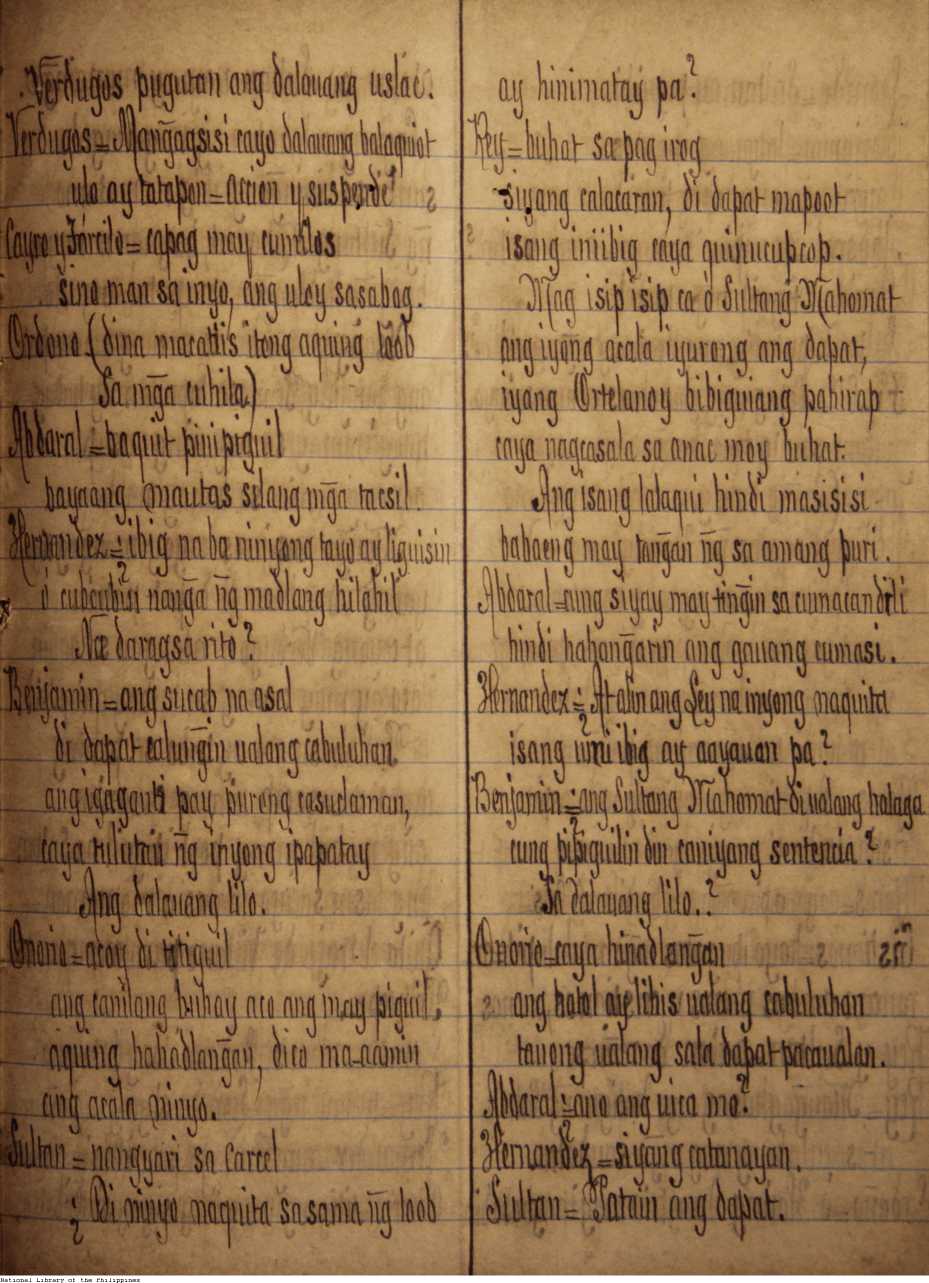 Verdugos pugutan ang dalauang uslac.
Verdugos = Mangagsisi cayo dalauang balaquiot
ulo ay tatapon = accion y suspende
Cayro y Tarcilo = capag may cumilos
sino man sa inyo, ang uloy sasabog.
Ordono (dina macattis itong aquing loob
Sa mḡa cuhila)
Abdaral = baquit pinipiguil
bayaang mautas silang mḡa tacsil.
Hernandez = ¿ibig na ba ninyong tayo ay liguisin
ó cubcubin nanḡa n̄g madlang hilahil
Na daragsa rito?
Benjamin = ang sucab na asal
di dapat calunḡin ualang cabuluhan
ang igaganti pay purong casuclaman,
caya tulutan n̄g inyong ipapatay
Ang dalauang lilo.
Onorio = acoy di titiguil
ang canilang buhay aco ang may piguil,
aquing hahadlanḡan, dico ma-aamin
ang acala ninyo.
Sultan = nangyari sa Carcel
¿Di ninyo naquita sa sama n̄g loob
ay hinimatay pa?
Rey = buhat sa pag irog
siyang calacaran, di dapat mapoot
isang iniibig caya quinucupcop.
Mag isip isip ca ó Sultang Mahomat
ang iyong acala iyurong ang dapat,
iyang Ortelanoy bibiguiang pahirap
caya nagcasala sa anac moy buhat.
Ang isang lalaqui hindi masisisi
babaeng may tanḡan n̄g sa amang puri.
Abdaral = ang siyay may tinḡin sa cumacandili
hindi hahanḡarin ang gauang cumasi.
Hernandez = ¿At alin ang Ley na inyong naquita
isang umiibig ay aayauan pa?
Benjamin = ang Sultang Mahomat di ualang halaga
cung pipiguilin din caniyang sentencia?
Sa dalauang lilo..?
Onorio = caya hinadlanḡan
ang hatol ay lihis ualang cabuluhan
tauong ualang sala dapat pacaualan.
Abdaral = ¿ano ang uica mo?
Hernandez = siyang catunayan.
Sultan = Patain ang dapat.
National Library of the Philippines